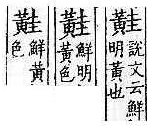 黊說文云鮮
明黃也
黊鮮明
黃色
黊鮮黃
色